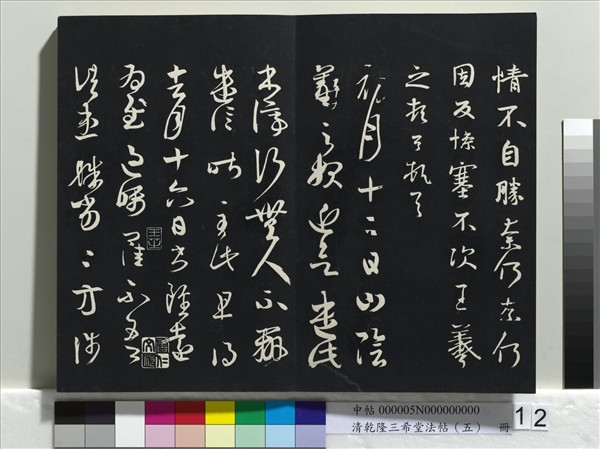 情不自勝奈何奈何
因反慘塞不次王羲
之頓首頓首
初月十二日山陰
羲之報近欲遣此
書停行無人不辦
遣信昨至此且得
去月十六日書雖遠
為慰過囑卿佳不吾
諸患殊劣〻方涉
中帖 000005N000000000
清乾隆三希堂法帖（五） 冊
12